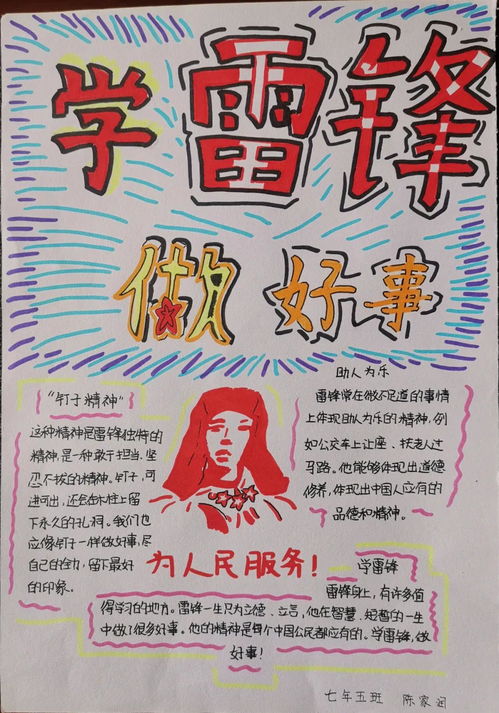 学雷锋
做好事
“钉子精神”
这种精神是雷锋独特的
精神，是一种敢于担当，坚
忍不拔的精神。钉子，可
进可出，还会在木柱上留
下永久的孔洞。我们也
应像钉子一样做好事，尽
自己的全力，留下最好
的印象。
助人为乐
雷锋常在微不足道的事情
上体现助人为乐的精神，例
如公交车上让座、扶老人过
马路。他能够体现出道德
修养，体现出中国人应有的
品德和精神。
为人民服务！
学雷锋
雷锋身上，有许多值
得学习的地方。雷锋一生只为立德、立言，他在智慧、短暂的一生
中做了很多好事。他的精神是每个中国公民都应有的。学雷锋，做
好事！
七年五班 陈家润